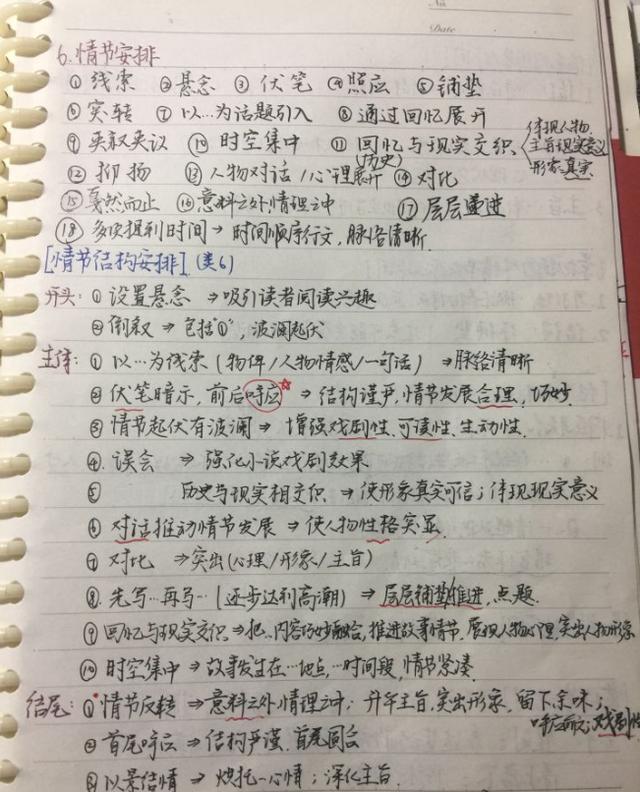 No
Date
6.情节安排
①线索 ②悬念 ③伏笔 ④照应 ⑤铺垫
⑥突转 ⑦以…为话题引入 ⑧通过回忆展开
⑨夹叙夹议 ⑩时空集中 ⑪回忆与现实交织
(历史)
体现人物
主旨现实意义
形象真实
⑫抑扬 ⑬人物对话/心理展开 ⑭对比
⑮戛然而止 ⑯意料之外,情理之中 ⑰层层递进
⑱多次提到时间→时间顺序行文,脉络清晰.
[情节结构安排](类6)
开头:①设置悬念⇒吸引读者阅读兴趣
②倒叙⇒包括"①",波澜起伏
主体:①以…为线索(物件/人物情感/一句话)⇒脉络清晰
②伏笔暗示,前后呼应☆⇒结构谨严,情节发展合理,巧妙.
③情节起伏有波澜⇒增强戏剧性、可读性、生动性.
④误会⇒强化小说戏剧效果
⑤历史与现实相交织⇒使形象真实可信;体现现实意义
⑥对话推动情节发展⇒使人物性格突显.
⑦对比⇒突出(心理/形象/主旨)
⑧先写…再写…(逐步达到高潮)⇒层层铺垫推进,点题.
⑨回忆与现实交织⇒把…内容巧妙融合,推进故事情节,展现人物心理,突出人物形象
⑩时空集中⇒故事发生在…地点,…时间段,情节紧凑.
结尾:①情节反转⇒意料之外,情理之中;升华主旨,突出形象,留下余味;
呼应前文;戏剧性
②首尾呼应⇒结构严谨,首尾圆合
③以景结情⇒烘托…心情;深化主旨.